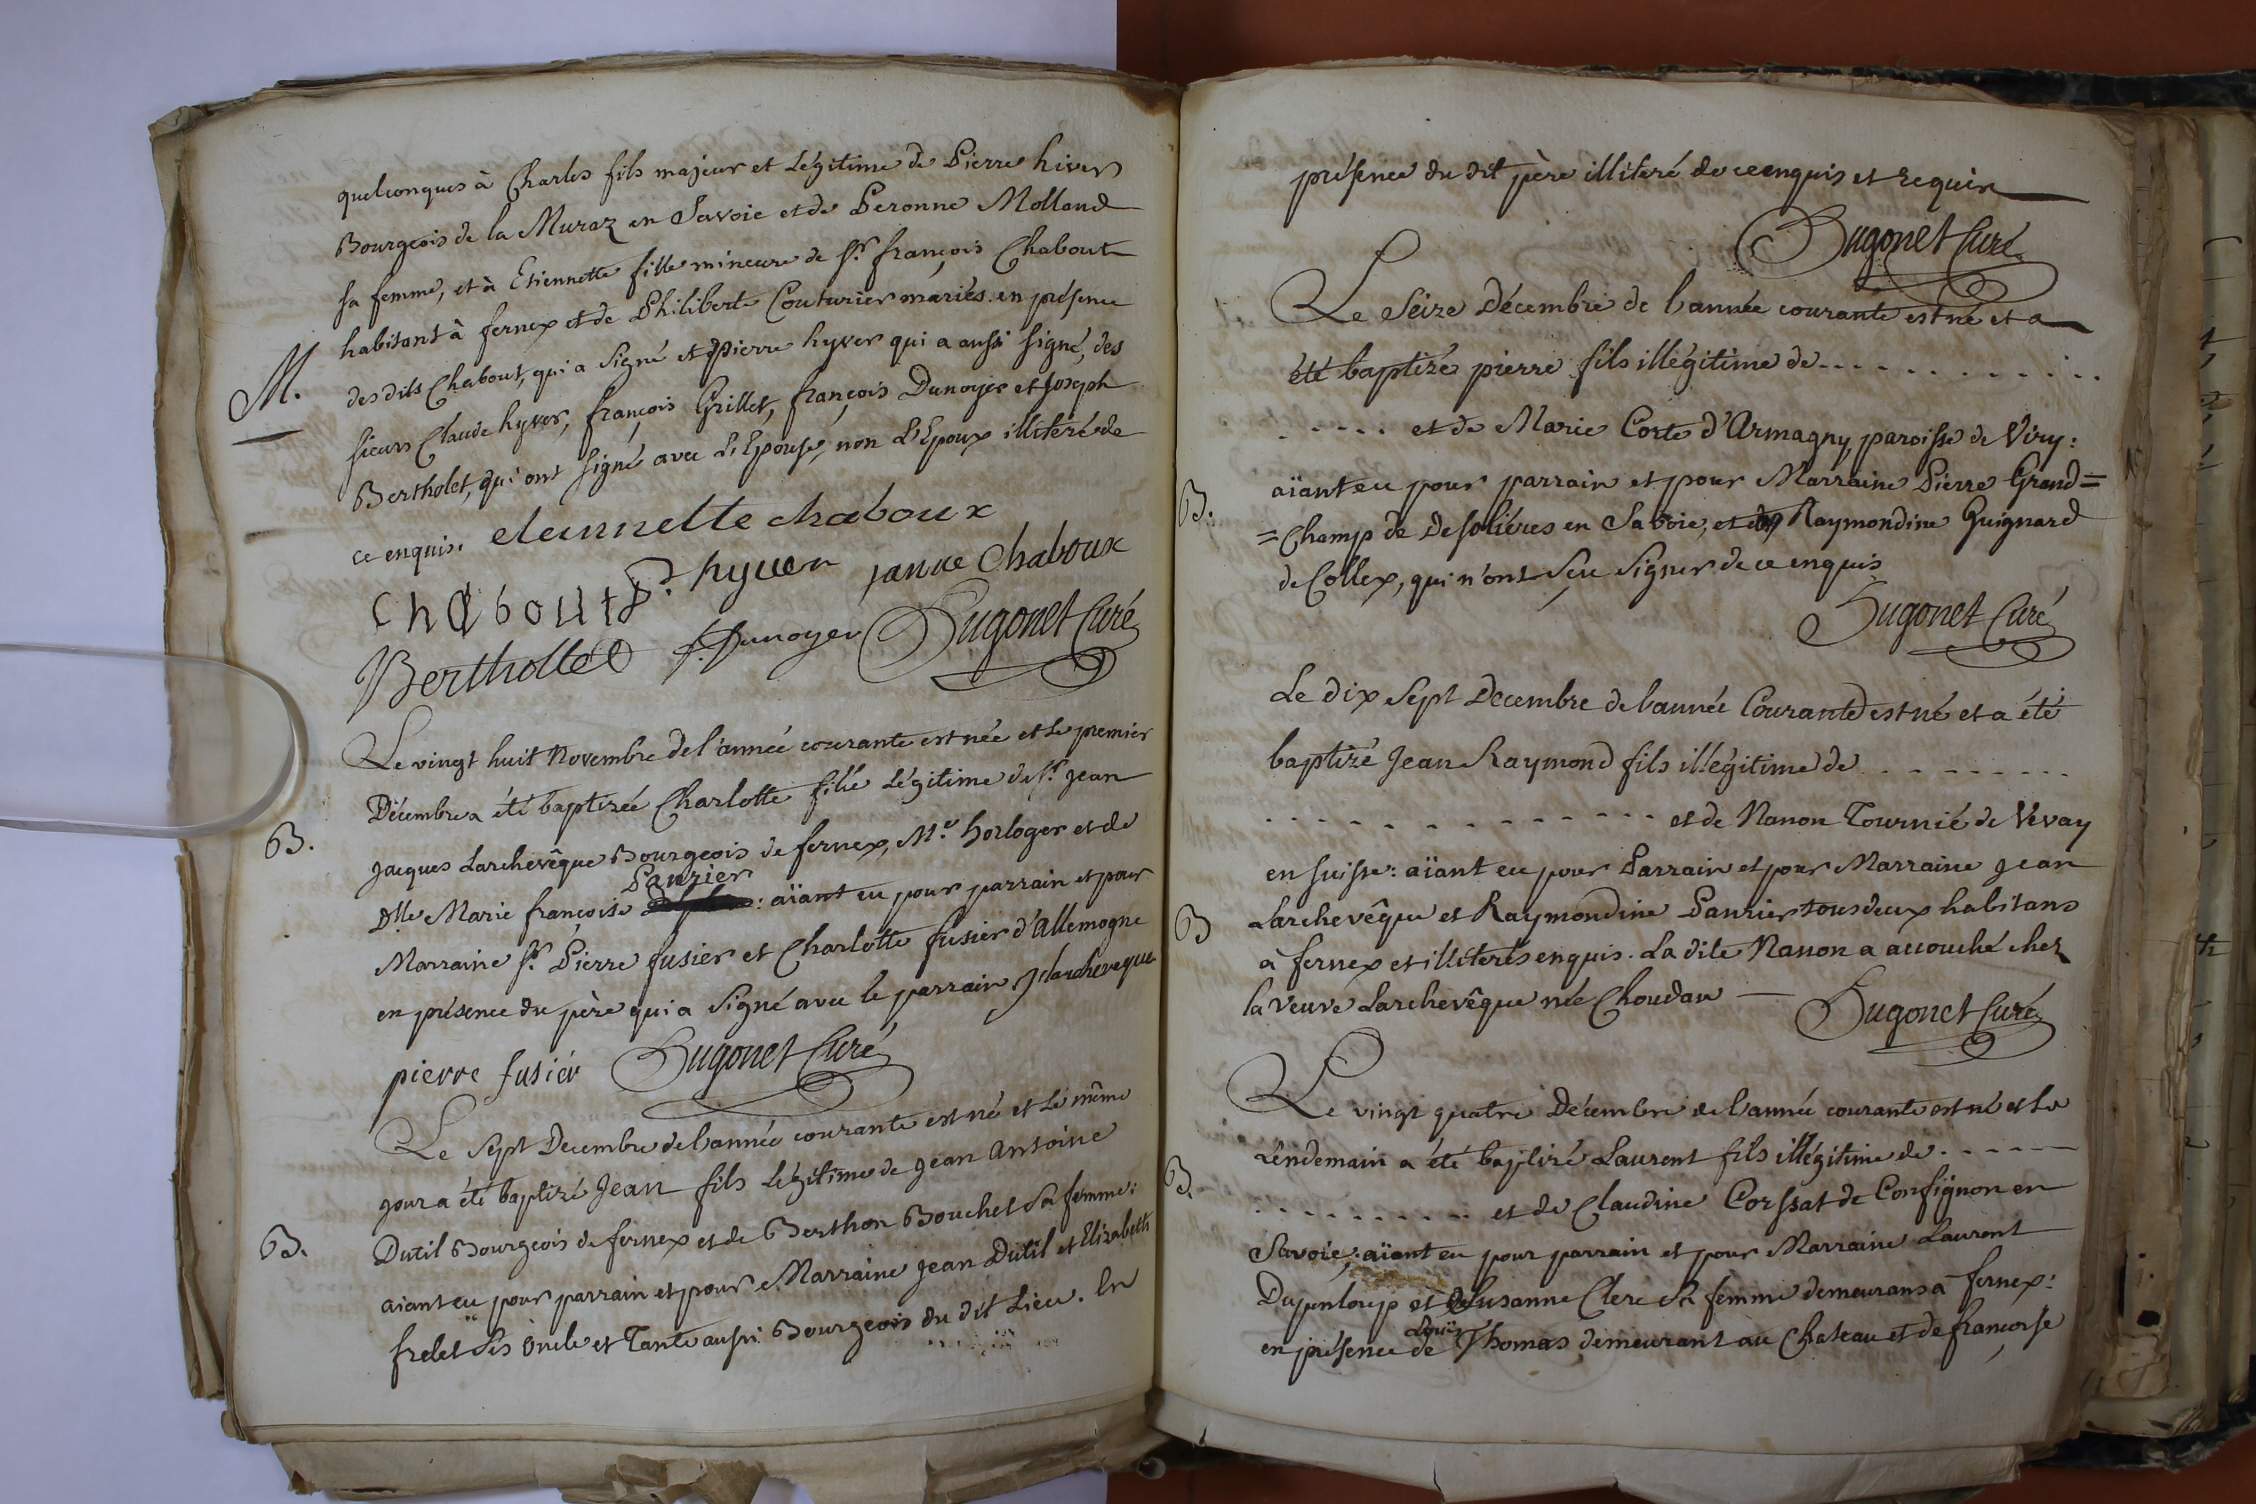 quelconques à Charles fils majeur et Légitime de Pierre hiver
Bourgeois de la Muraz en Savoie et de Peronne Molland
sa femme, et à Etiennette fille mineure de Sr. françois Chabout
habitant à fernex et de Philiberte Couturier mariés: en présence
M.
des dits Chabout, qui a Signé et Pierre hyver qui a aussi signé, des
sieurs Claude hyver, françois Grillet, françois Dunoyer et Joseph
Bertholet, qui ont signé avec L'Epouse, non L'Epoux illiteré de
ce enquis. etiennette chaboux
chabout P. hyver janne Chaboux
Berthollet f. Dunoyer Hugonet Curé
Le vingt huit Novembre de l'année courante est née et Le premier
Décembre a été baptizée Charlotte fille Légitime de Sr. jean
B.
jacques Larchevêque Bourgeois de fernex, Me. horloger et de
Panrier
Dlle Marie françoise : aïant eu pour parrain et pour
Marraine Sr. Pierre fusier et Charlotte fusier d'Allemogne
en présence du père qui a Signé avec le parrain J larcheveque
pierre fusiér Hugonet Curé
Le Sept Decembre de l'année courante est né et Le même
jour a été baptizé Jean fils Légitime de Jean Antoine
B.
Dutil Bourgeois de fernex et de Berthon Bouchet Sa femme:
aïant eu pour parrain et pour Marraine Jean Dutil et Elizabeth
frelet Ses oncle et Tante aussi Bourgeois du dit Lieu. En
présence du dit père illiteré de ce enquis et requis
Hugonet Curé
Le Seize Décembre de l'année courante est né et a
été baptizé pierre fils illégitime de . . . . . . . . . . . .
. . . . . et de Marie Corte d'Armagny, paroisse de Viry:
B.
aïant eu pour parrain et pour Marraine Pierre Grand=
=Champ de Desolières en Savoie, et Raymondine Guignard
de Collex, qui n'ont Sçu Signer de ce enquis
Hugonet Curé
Le dix Sept Decembre de l'année Courante est né et a été
baptizé Jean Raymond fils illégitime de . . . . . . . . .
. . . . . . . . . . . . . . et de Nanon Tournié de Vevay
en suisse: aïant eu pour Parrain et pour Marraine jean
B
Larchevêque et Raymondine Panrier tous deux habitans
à fernex et illiterés enquis. La dite Nanon a accouché chez
la veuve Larchevêque née Choudan Hugonet Curé
Le vingt quatre Décembre de l'année courante est né et Le
Lendemain a été baptizé Laurent fils illégitime de . . . . . .
B.
. . . . . . . . . . . et de Claudine Corssat de Confignon en
Savoie; aïant eu pour parrain et pour Marraine Laurent
Dupenloup et Susanne Clerc Sa femme demeurans à fernex:
Louis
en présence de Thomas demeurant au Chateau et de françoise